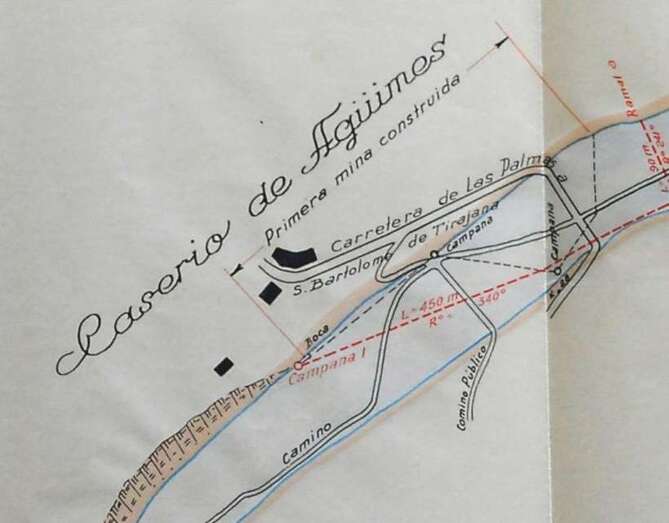 Caserio de Agüimes
Primera mina construida
Carretera de Las Palmas a
S. Bartolomé de Tirajana
Campana
Campana
Boca
Campana I
L=450 m
Rº÷ 340º
Camino
Camino Publico
Ramal a
90 m